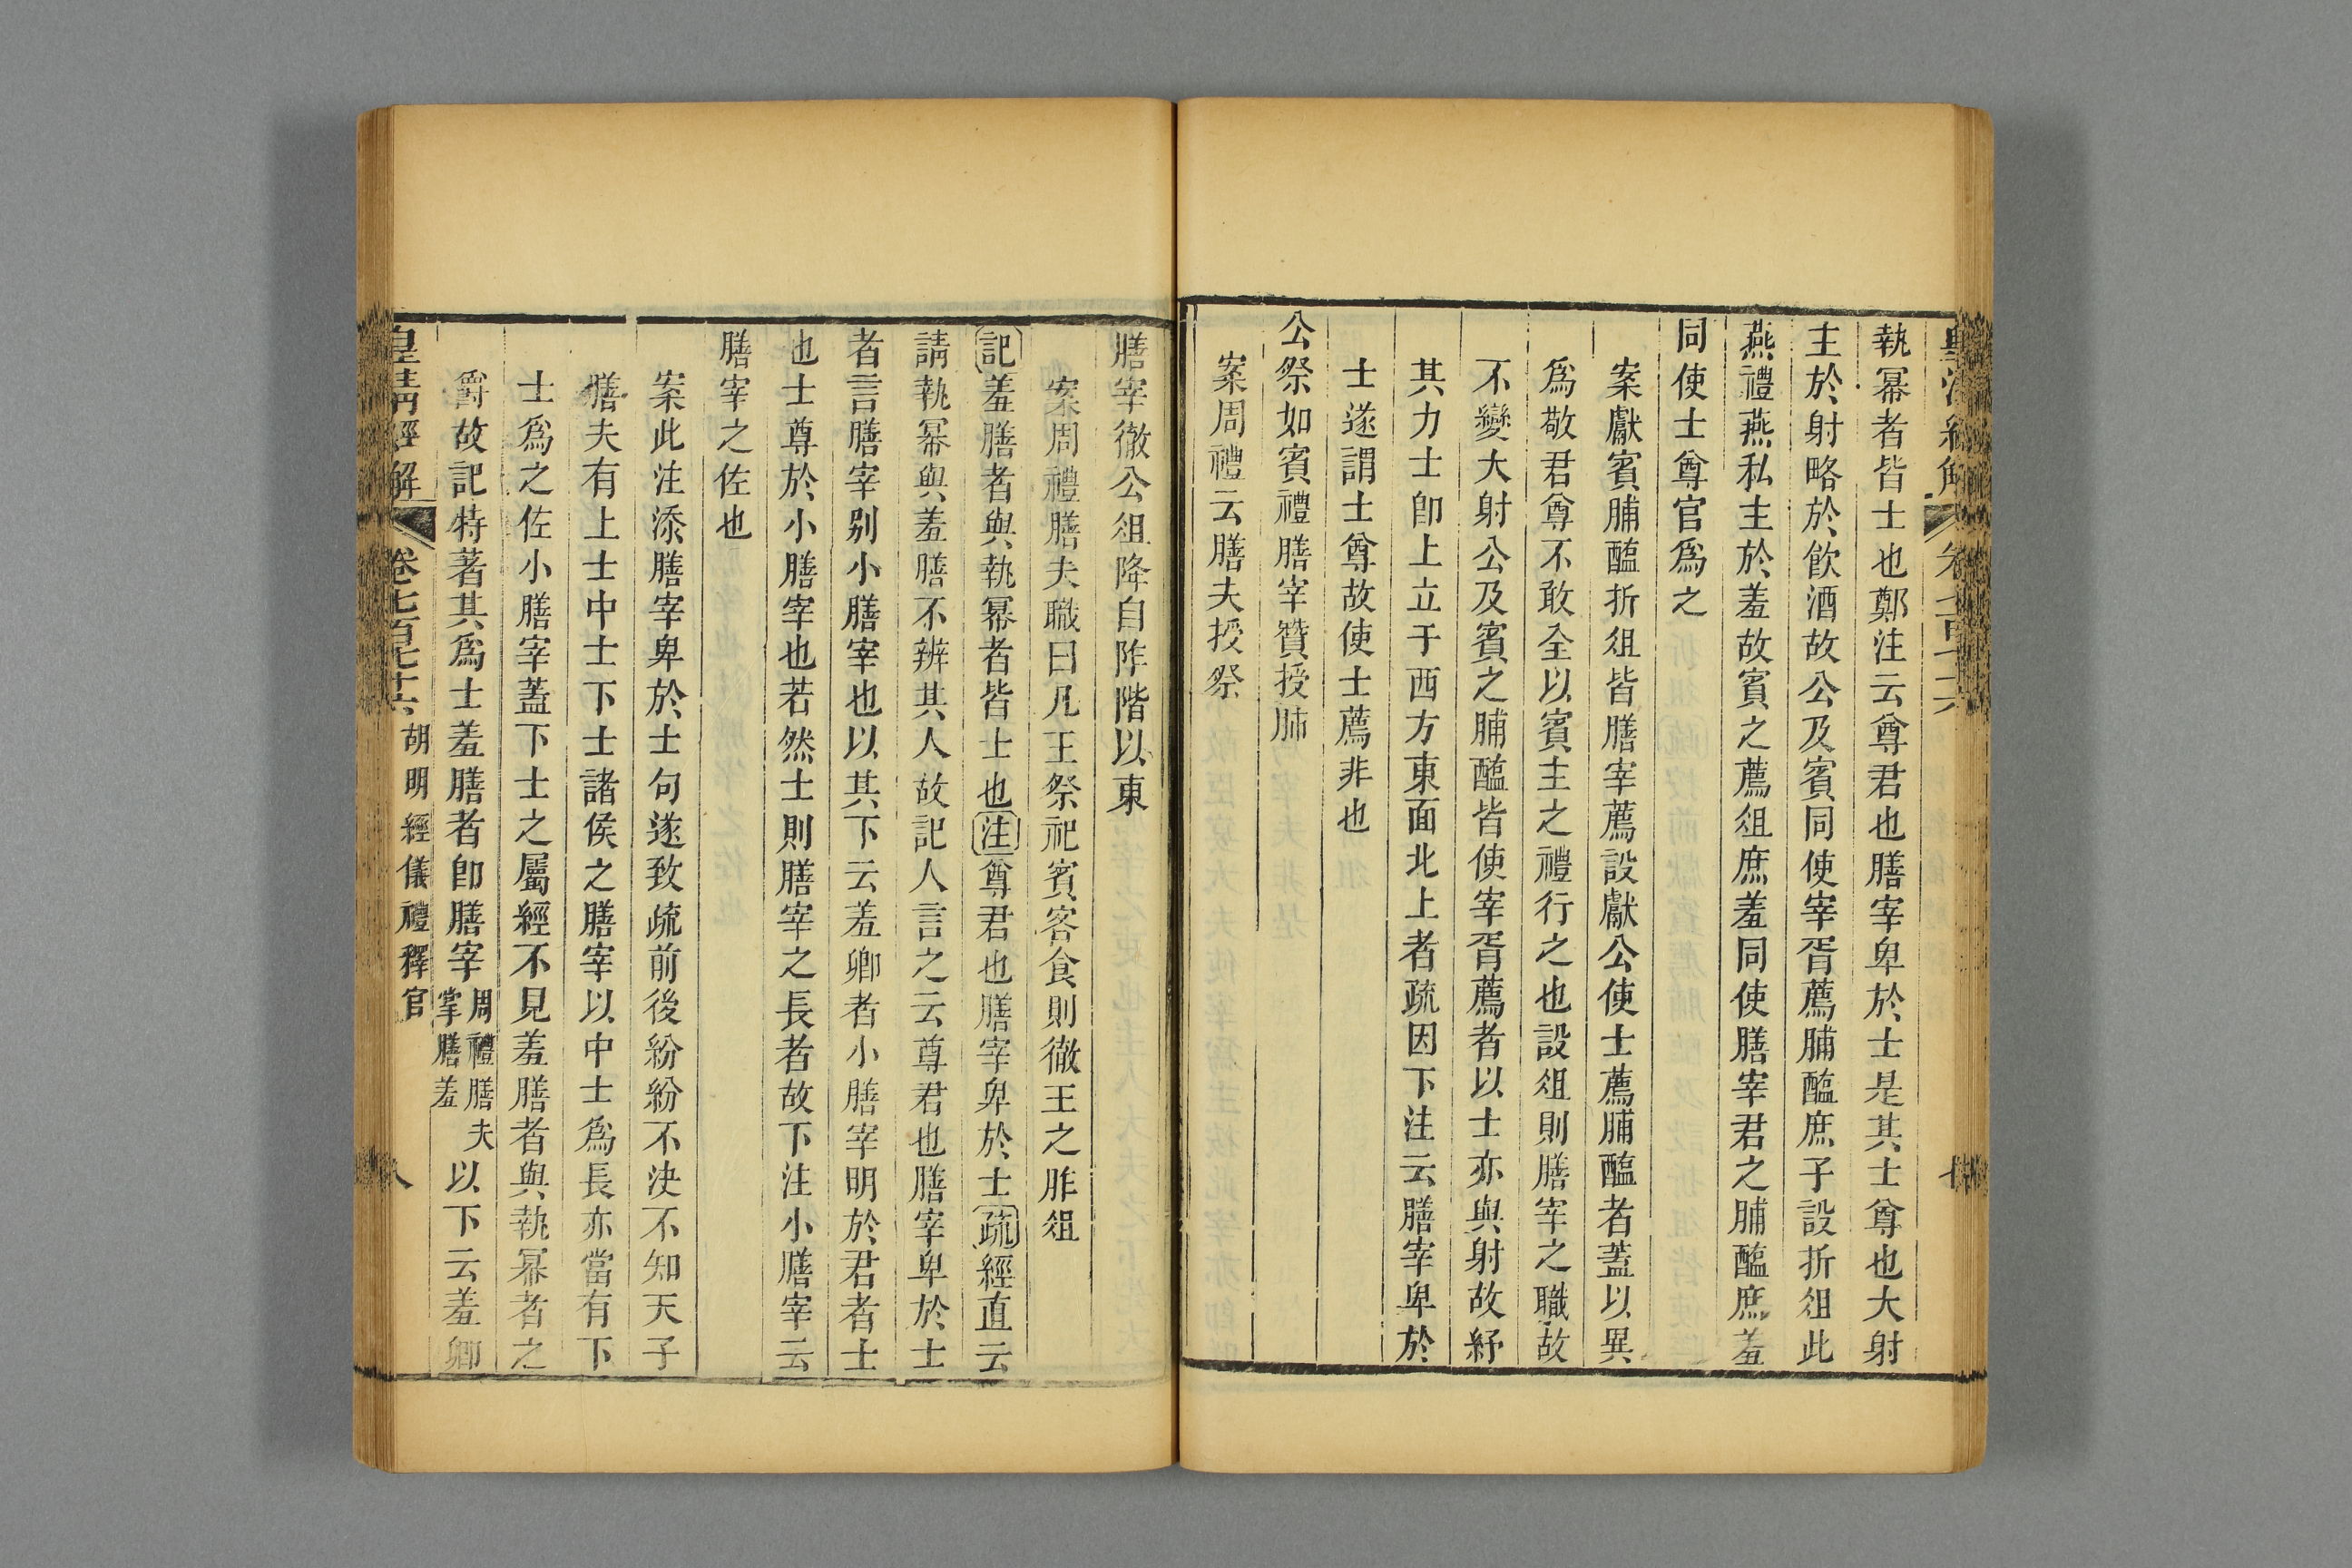 執冪者皆士也鄭注云尊君也膳宰卑於士是其士尊也大射
主於射略於飲酒故公及賓同使宰胥薦脯醢庶子設折俎此
燕禮燕私主於羞故賓之薦俎庶羞同使膳宰君之脯醢庶羞
同使士尊官爲之
案獻賓脯醢折俎皆膳宰薦設獻公使士薦脯醢者蓋以異
爲敬君尊不敢全以賓主之禮行之也設俎則膳宰之職故
不變大射公及賓之脯醢皆使宰胥薦者以士亦與射故紓
其力士卽上立于西方東面北上者疏因下注云膳宰卑於
士遂謂士尊故使士薦非也
公祭如賓禮膳宰贊授肺
案周禮云膳夫授祭
膳宰徹公俎降自阼階以東
案周禮膳夫職曰凡王祭祀賓客食則徹王之胙俎
記羞膳者與執冪者皆士也注尊君也膳宰卑於士疏經直云
請執冪與羞膳不辨其人故記人言之云尊君也膳宰卑於士
者言膳宰别小膳宰也以其下云羞卿者小膳宰明於君者士
也士尊於小膳宰也若然士則膳宰之長者故下注小膳宰云
膳宰之佐也
案此注添膳宰卑於士句遂致疏前後紛紛不決不知天子
膳夫有上士中士下士諸侯之膳宰以中士爲長亦當有下
士爲之佐小膳宰蓋下士之屬經不見羞膳者與執冪者之
爵故記特著其爲士羞膳者卽膳宰周禮膳夫掌膳羞以下云羞卿
皇清經解 卷七百七十六 胡明經儀禮釋官 八